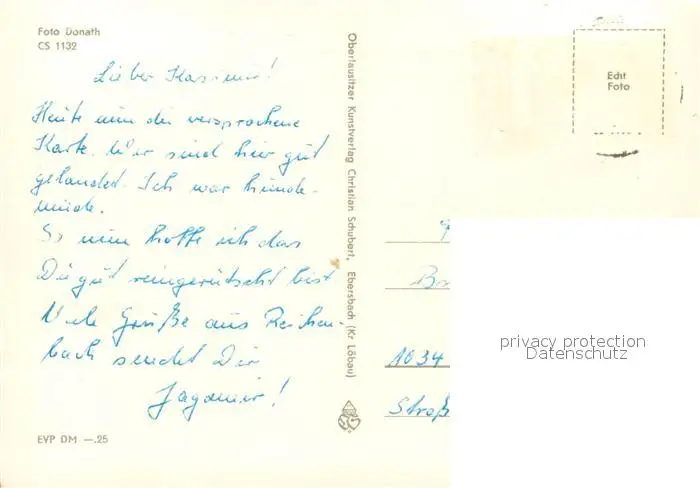 Foto Donath
CS 1132
Lieber Kasimir!
Heute nun die versprochene
Karte. Wir sind hier gut
gelandet. Ich war hunde-
müde.
So nun hoffe ich das
Du gut reingerutscht bist
Viele Grüße aus Reichen-
bach sendet Dir
EVP DM —.25
Oberlausitzer Kunstverlag Christian Schubert, Ebersbach (Kr. Löbau)
Echt
Foto
1034
Straß
privacy protection
Datenschutz